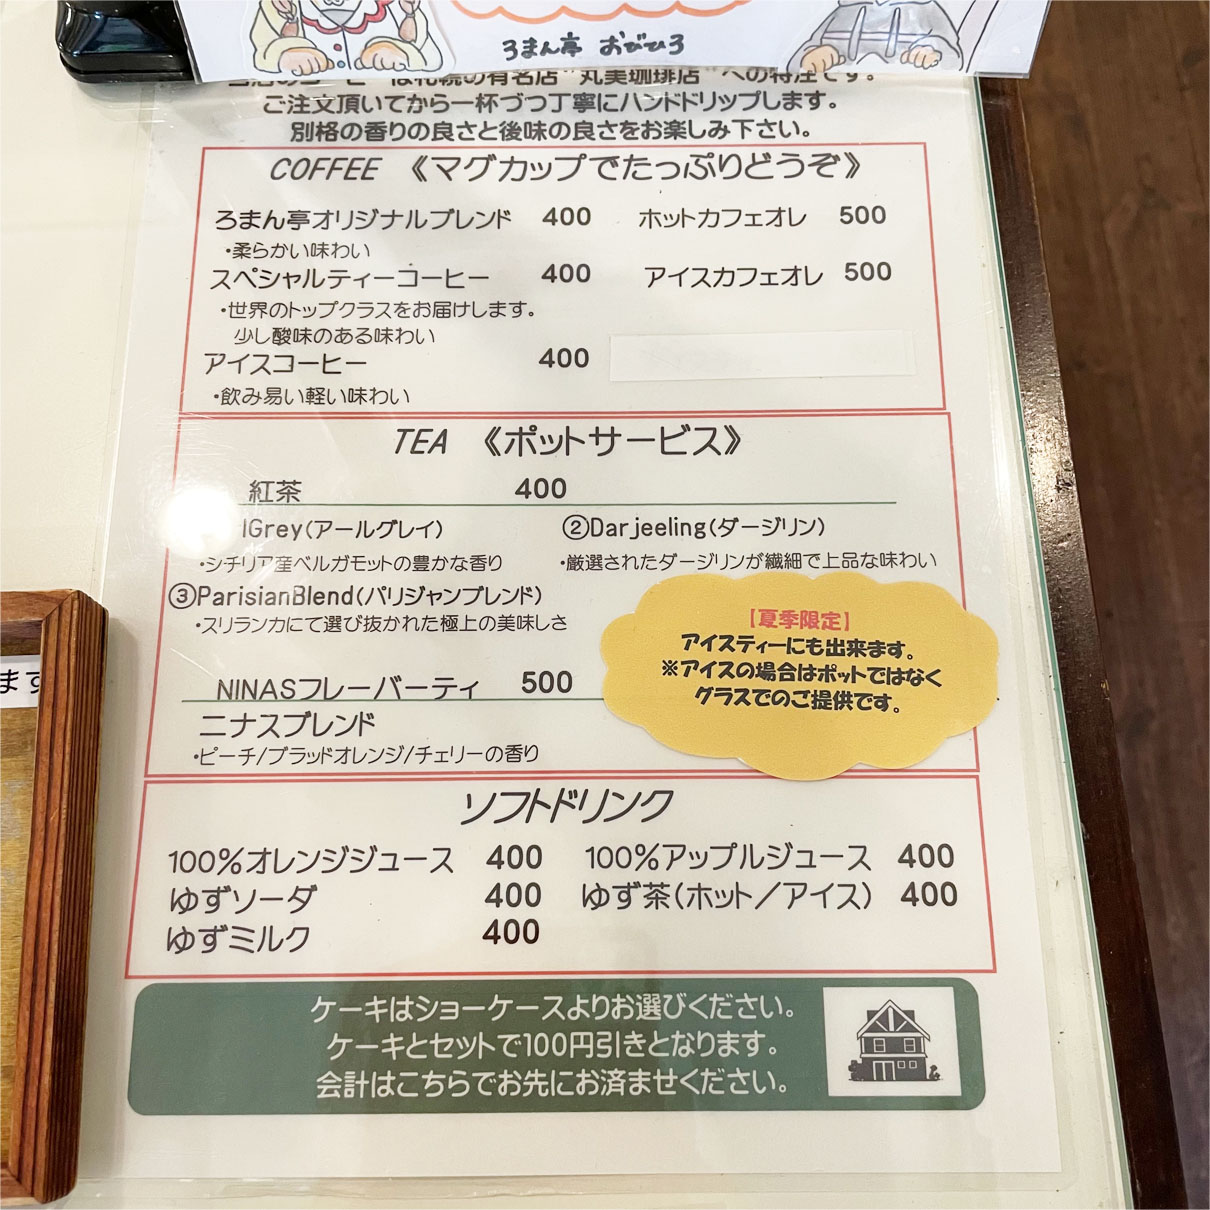 ろまん亭 おびひろ
の有名店"丸美珈琲店"への特注です。
ご注文頂いてから一杯づつ丁寧にハンドドリップします。
別格の香りの良さと後味の良さをお楽しみ下さい。
COFFEE 《マグカップでたっぷりどうぞ》
ろまん亭オリジナルブレンド 400 ホットカフェオレ 500
・柔らかい味わい
スペシャルティーコーヒー 400 アイスカフェオレ 500
・世界のトップクラスをお届けします。
少し酸味のある味わい
アイスコーヒー 400
・飲み易い軽い味わい
TEA 《ポットサービス》
紅茶 400
lGrey(アールグレイ) ②Darjeeling(ダージリン)
・シチリア産ベルガモットの豊かな香り ・厳選されたダージリンが繊細で上品な味わい
③ParisianBlend(パリジャンブレンド)
・スリランカにて選び抜かれた極上の美味しさ
【夏季限定】
アイスティーにも出来ます。
※アイスの場合はポットではなく
グラスでのご提供です。
ます
NINASフレーバーティ 500
ニナスブレンド
・ピーチ/ブラッドオレンジ/チェリーの香り
ソフトドリンク
100%オレンジジュース 400 100%アップルジュース 400
ゆずソーダ 400 ゆず茶(ホット/アイス) 400
ゆずミルク 400
ケーキはショーケースよりお選びください。
ケーキとセットで100円引きとなります。
会計はこちらでお先にお済ませください。